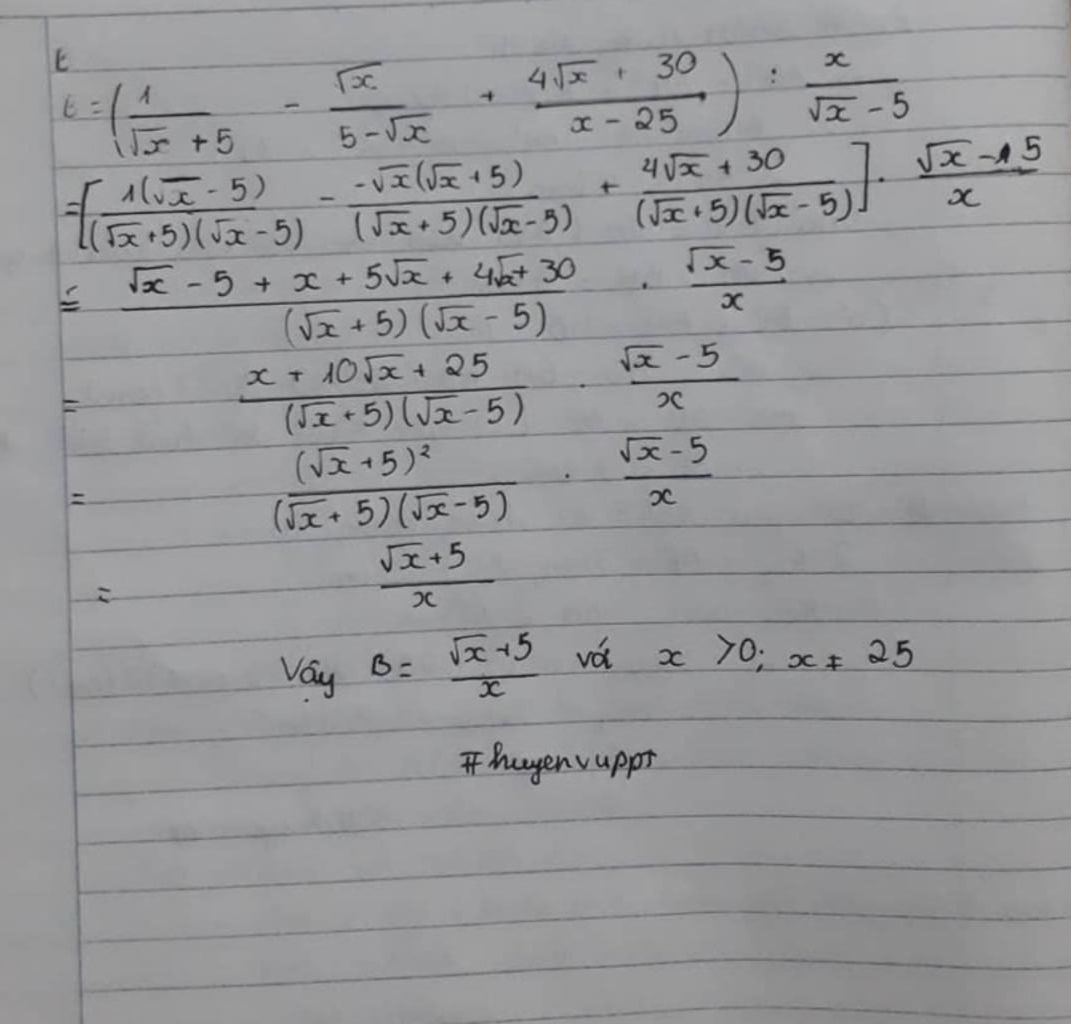 t
t = (1/(√x + 5) - √x/(5-√x) + (4√x + 30)/(x - 25)) : x/(√x - 5)
= [1(√x - 5)/((√x+5)(√x - 5)) - -√x(√x + 5)/((√x+5)(√x-5)) + (4√x + 30)/((√x+5)(√x - 5))] . (√x - 5)/x
= (√x - 5 + x + 5√x + 4√x + 30)/((√x + 5)(√x - 5)) . (√x - 5)/x
= (x + 10√x + 25)/((√x + 5)(√x - 5)) . (√x - 5)/x
= (√x + 5)²/((√x + 5)(√x - 5)) . (√x - 5)/x
= (√x + 5)/x
Vậy B = (√x + 5)/x với x > 0; x ≠ 25
#huyenvuppt